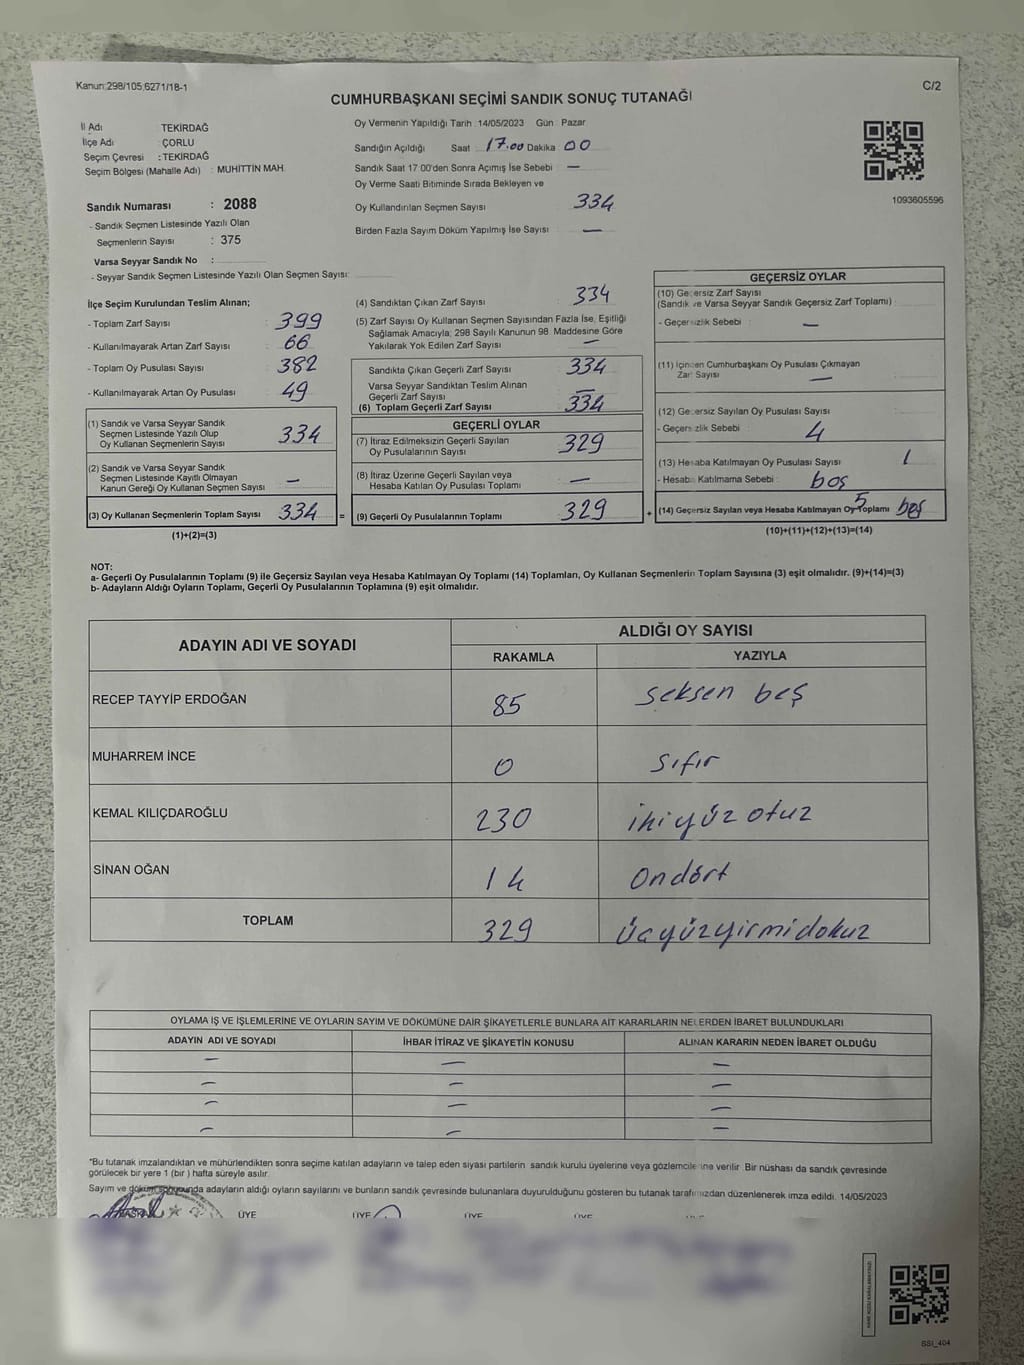 Kanun:298/105;6271/18-1
C/2
CUMHURBAŞKANI SEÇİMİ SANDIK SONUÇ TUTANAĞI
İl Adı TEKİRDAĞ
İlçe Adı : ÇORLU
Seçim Çevresi : TEKİRDAĞ
Seçim Bölgesi (Mahalle Adı) : MUHİTTİN MAH
Sandık Numarası : 2088
- Sandık Seçmen Listesinde Yazılı Olan
Seçmenlerin Sayısı : 375
Varsa Seyyar Sandık No :
- Seyyar Sandık Seçmen Listesinde Yazılı Olan Seçmen Sayısı:
Oy Vermenin Yapıldığı Tarih :14/05/2023 Gün : Pazar
Sandığın Açıldığı Saat 17.00 Dakika 00
Sandık Saat 17 00'den Sonra Açımış İse Sebebi —
Oy Verme Saati Bitiminde Sırada Bekleyen ve
Oy Kullandırılan Seçmen Sayısı 334
Birden Fazla Sayım Döküm Yapılmış İse Sayısı —
1093605596
İlçe Seçim Kurulundan Teslim Alınan;
- Toplam Zarf Sayısı : 399
- Kullanılmayarak Artan Zarf Sayısı : 66
- Toplam Oy Pusulası Sayısı : 382
- Kullanılmayarak Artan Oy Pusulası : 49
(1) Sandık ve Varsa Seyyar Sandık
Seçmen Listesinde Yazılı Olup
Oy Kullanan Seçmenlerin Sayısı : 334
(2) Sandık ve Varsa Seyyar Sandık
Seçmen Listesinde Kayıtlı Olmayan
Kanun Gereği Oy Kullanan Seçmen Sayısı : —
(3) Oy Kullanan Seçmenlerin Toplam Sayısı : 334 =
(1)+(2)=(3)
(4) Sandıktan Çıkan Zarf Sayısı 334
(5) Zarf Sayısı Oy Kullanan Seçmen Sayısından Fazla İse, Eşitliği
Sağlamak Amacıyla, 298 Sayılı Kanunun 98. Maddesine Göre
Yakılarak Yok Edilen Zarf Sayısı —
Sandıkta Çıkan Geçerli Zarf Sayısı 334
Varsa Seyyar Sandıktan Teslim Alınan
Geçerli Zarf Sayısı —
(6) Toplam Geçerli Zarf Sayısı 334
GEÇERLİ OYLAR
(7) İtiraz Edilmeksizin Geçerli Sayılan
Oy Pusulalarının Sayısı 329
(8) İtiraz Üzerine Geçerli Sayılan veya
Hesaba Katılan Oy Pusulası Toplamı —
(9) Geçerli Oy Pusulalarının Toplamı 329 +
GEÇERSİZ OYLAR
(10) Geçersiz Zarf Sayısı
(Sandık ve Varsa Seyyar Sandık Geçersiz Zarf Toplamı) :
- Geçersizlik Sebebi : —
(11) İçinden Cumhurbaşkanı Oy Pusulası Çıkmayan
Zarf Sayısı —
(12) Geçersiz Sayılan Oy Pusulası Sayısı
- Geçersizlik Sebebi : 4
(13) Hesaba Katılmayan Oy Pusulası Sayısı 1
- Hesaba Katılmama Sebebi : boş
(14) Geçersiz Sayılan veya Hesaba Katılmayan Oy Toplamı 5 beş
(10)+(11)+(12)+(13)=(14)
NOT:
a- Geçerli Oy Pusulalarının Toplamı (9) ile Geçersiz Sayılan veya Hesaba Katılmayan Oy Toplamı (14) Toplamları, Oy Kullanan Seçmenlerin Toplam Sayısına (3) eşit olmalıdır. (9)+(14)=(3)
b- Adayların Aldığı Oyların Toplamı, Geçerli Oy Pusulalarının Toplamına (9) eşit olmalıdır.
ADAYIN ADI VE SOYADI ALDIĞI OY SAYISI
RAKAMLA YAZIYLA
RECEP TAYYİP ERDOĞAN 85 seksen beş
MUHARREM İNCE 0 sıfır
KEMAL KILIÇDAROĞLU 230 ikiyüz otuz
SİNAN OĞAN 14 Ondört
TOPLAM 329 üçyüzyirmidokuz
OYLAMA İŞ VE İŞLEMLERİNE VE OYLARIN SAYIM VE DÖKÜMÜNE DAİR ŞİKAYETLERLE BUNLARA AİT KARARLARIN NELERDEN İBARET BULUNDUKLARI
ADAYIN ADI VE SOYADI İHBAR İTİRAZ VE ŞİKAYETİN KONUSU ALINAN KARARIN NEDEN İBARET OLDUĞU
— — —
— — —
— — —
— — —
*Bu tutanak imzalandıktan ve mühürlendikten sonra seçime katılan adayların ve talep eden siyasi partilerin sandık kurulu üyelerine veya gözlemcilerine verilir. Bir nüshası da sandık çevresinde
görülecek bir yere 1 (bir ) hafta süreyle asılır.
Sayım ve döküm sonucunda adayların aldığı oyların sayılarını ve bunların sandık çevresinde bulunanlara duyurulduğunu gösteren bu tutanak tarafımızdan düzenlenerek imza edildi. 14/05/2023
BAŞKAN ÜYE ÜYE ÜYE ÜYE
SSİ_404